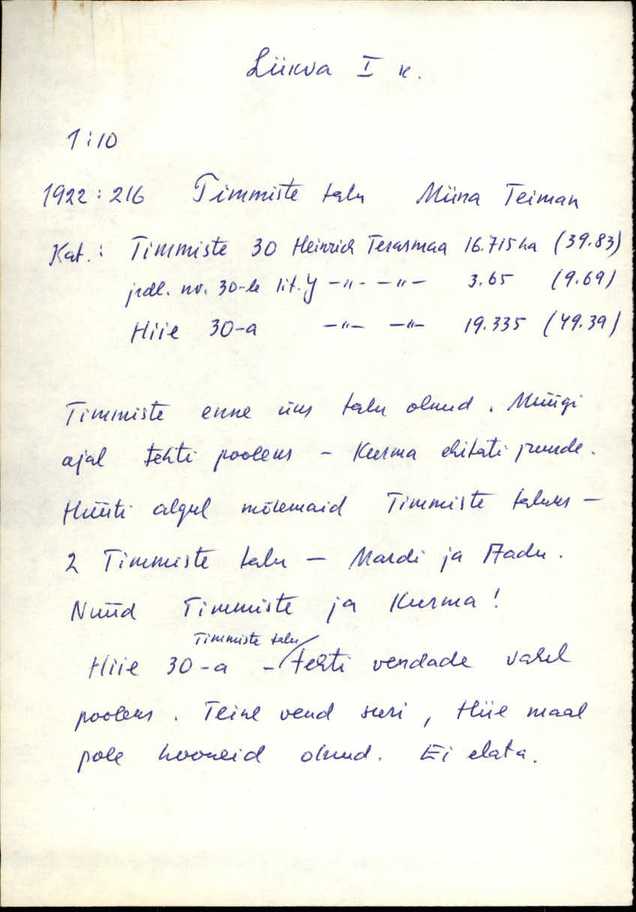 Liikva I k.
1:10
1922:216 Timmiste talu Miina Teiman
Kat.: Timmiste 30 Heinrich Terasmaa 16.715 ha (39.83)
jrdl. nr. 30-le lit. Y -"- -"- 3.65 (9.69)
Hiie 30-a -"- -"- 19.335 (49.39)
Timmiste enne üks talu olnud. Müügi
ajal tehti pooleks - Kurma ehitati juurde.
Hüüti algul mõlemaid Timmiste taluks -
2 Timmiste talu - Mardi ja Aadu.
Nüüd Timmiste ja Kurma!
Timmiste talu
Hiie 30-a - tehti vendade vahel
pooleks. Teine vend suri, Hiie maal
pole hooneid olnud. Ei elata.